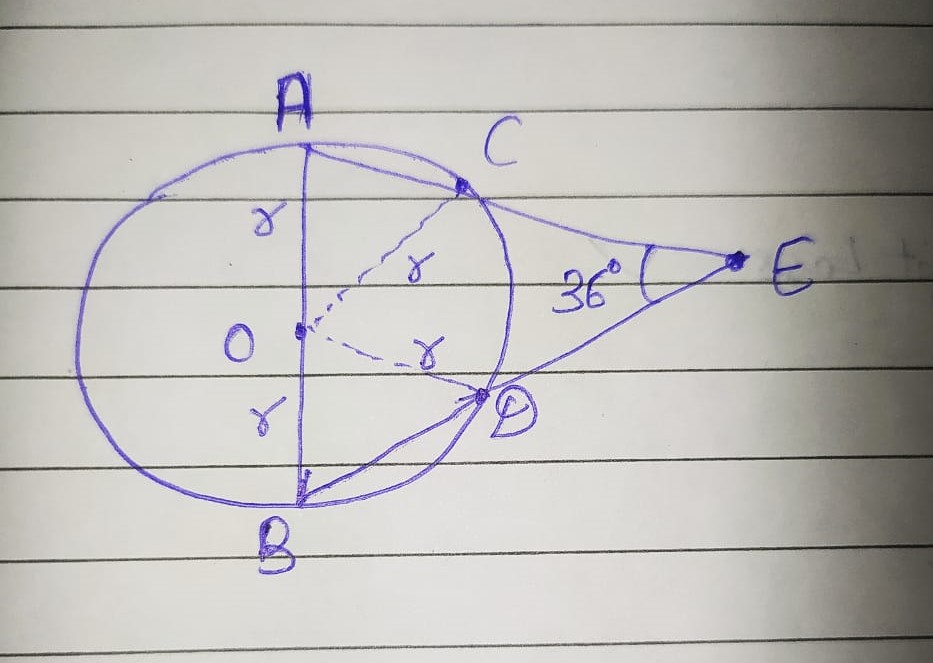 A
C
r
r
36°
E
O
r
r
D
B